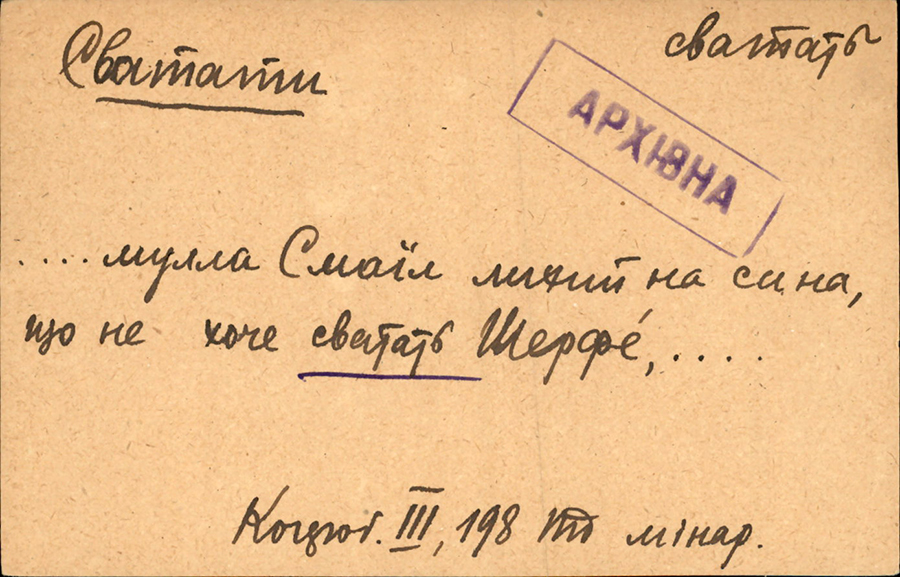 Сватати
сватать
АРХІВНА
....мулла Смаїл лихий на сина,
що не хоче сватать Шерфе́,.....
Коцюб. III, 198 Під мінар.